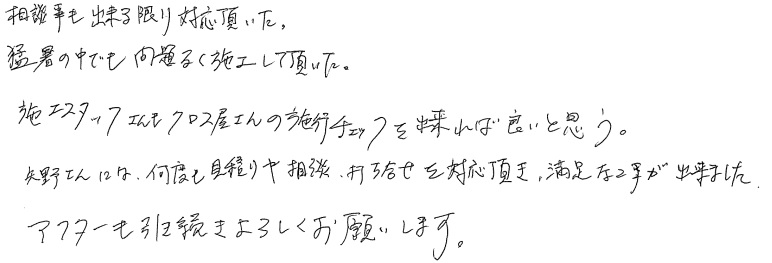 相談事も出来る限り対応頂いた。
猛暑の中でも問題なく施工して頂いた。
施工スタッフさんもクロス屋さんの施行チェックを出来れば良いと思う。
矢野さんには、何度も見積りや相談、打ち合せを対応頂き、満足な工事が出来ました。
アフターも引続きよろしくお願いします。